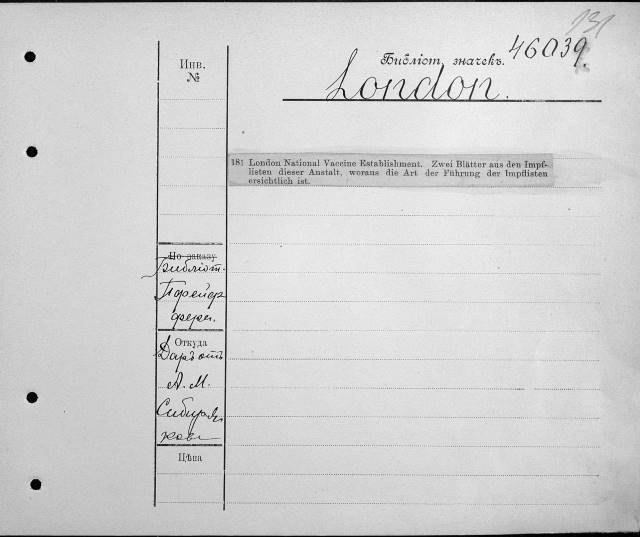 131
Инв.
№
Библіот. значекъ.
46039.
London.
181 London National Vaccine Establishment. Zwei Blätter aus den Impf-
listen dieser Anstalt, woraus die Art der Führung der Impflisten
ersichtlich ist.
По заказу
Библіот.
Откуда
Даръ отъ
А. М.
Сибиря
кова
Цѣна